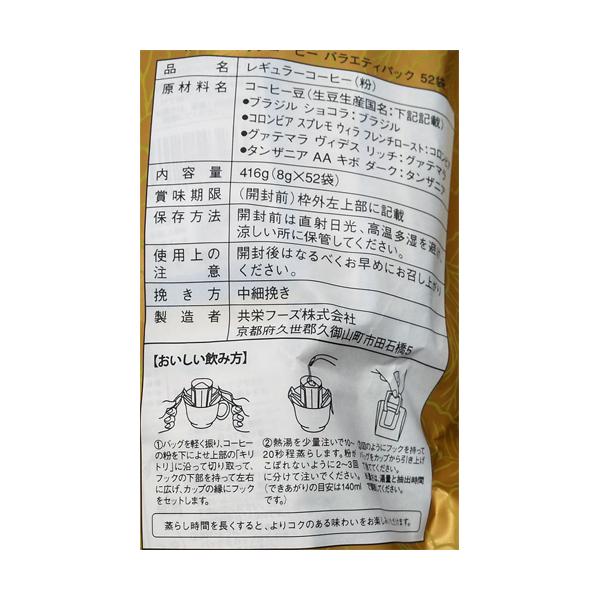 コーヒー バラエティパック 52袋
品名 レギュラーコーヒー(粉)
原材料名 コーヒー豆(生豆生産国名:下記記載)
●ブラジル ショコラ:ブラジル
●コロンビア スプレモ ウィラ フレンチロースト:コロンビ
●グァテマラ ヴィデス リッチ:グァテマラ
●タンザニア AA キボ ダーク:タンザニア
内容量 416g(8g×52袋)
賞味期限 (開封前)枠外左上部に記載
保存方法 開封前は直射日光、高温多湿を避け、
涼しい所に保管してください。
使用上の注意 開封後はなるべくお早めにお召し上がり
ください。
挽き方 中細挽き
製造者 共栄フーズ株式会社
京都府久世郡久御山町市田石橋5
【おいしい飲み方】
①バッグを軽く振り、コーヒー
の粉を下によせ上部の「キリ
トリ」に沿って切り取って、
フックの下部を持って左右
に広げ、カップの縁にフック
をセットします。
②熱湯を少量注いで10〜
20秒程蒸らします。粉が
こぼれないように2〜3回
に分けて注いでください。
(できあがりの目安は140ml
です。)
のようにフックを持って
バッグをカップから引き上げ
てください。
湯量と抽出時間
で調節してください。
蒸らし時間を長くすると、よりコクのある味わいをお楽しみいただけます。